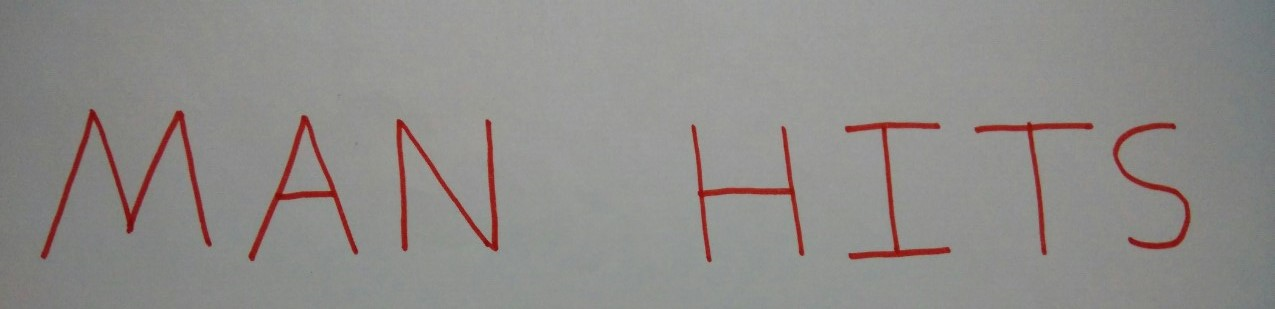 MAN HITS